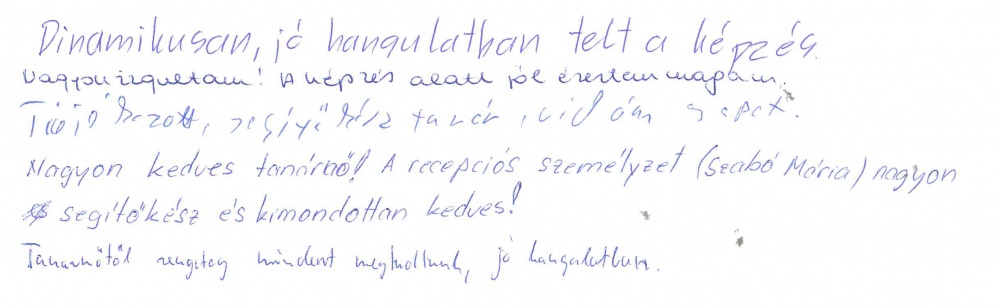 Dinamikusan, jó hangulatban telt a képzés.
Nagyon izgultam! A képzés alatt jól éreztem magam.
Tájékozott, segítőkész tanár, vidám csapat.
Nagyon kedves tanárnő! A recepciós személyzet (Szabó Mária) nagyon
segítőkész és kimondottan kedves!
Tanárnőtől rengeteg mindent megtudtunk, jó hangulatban.